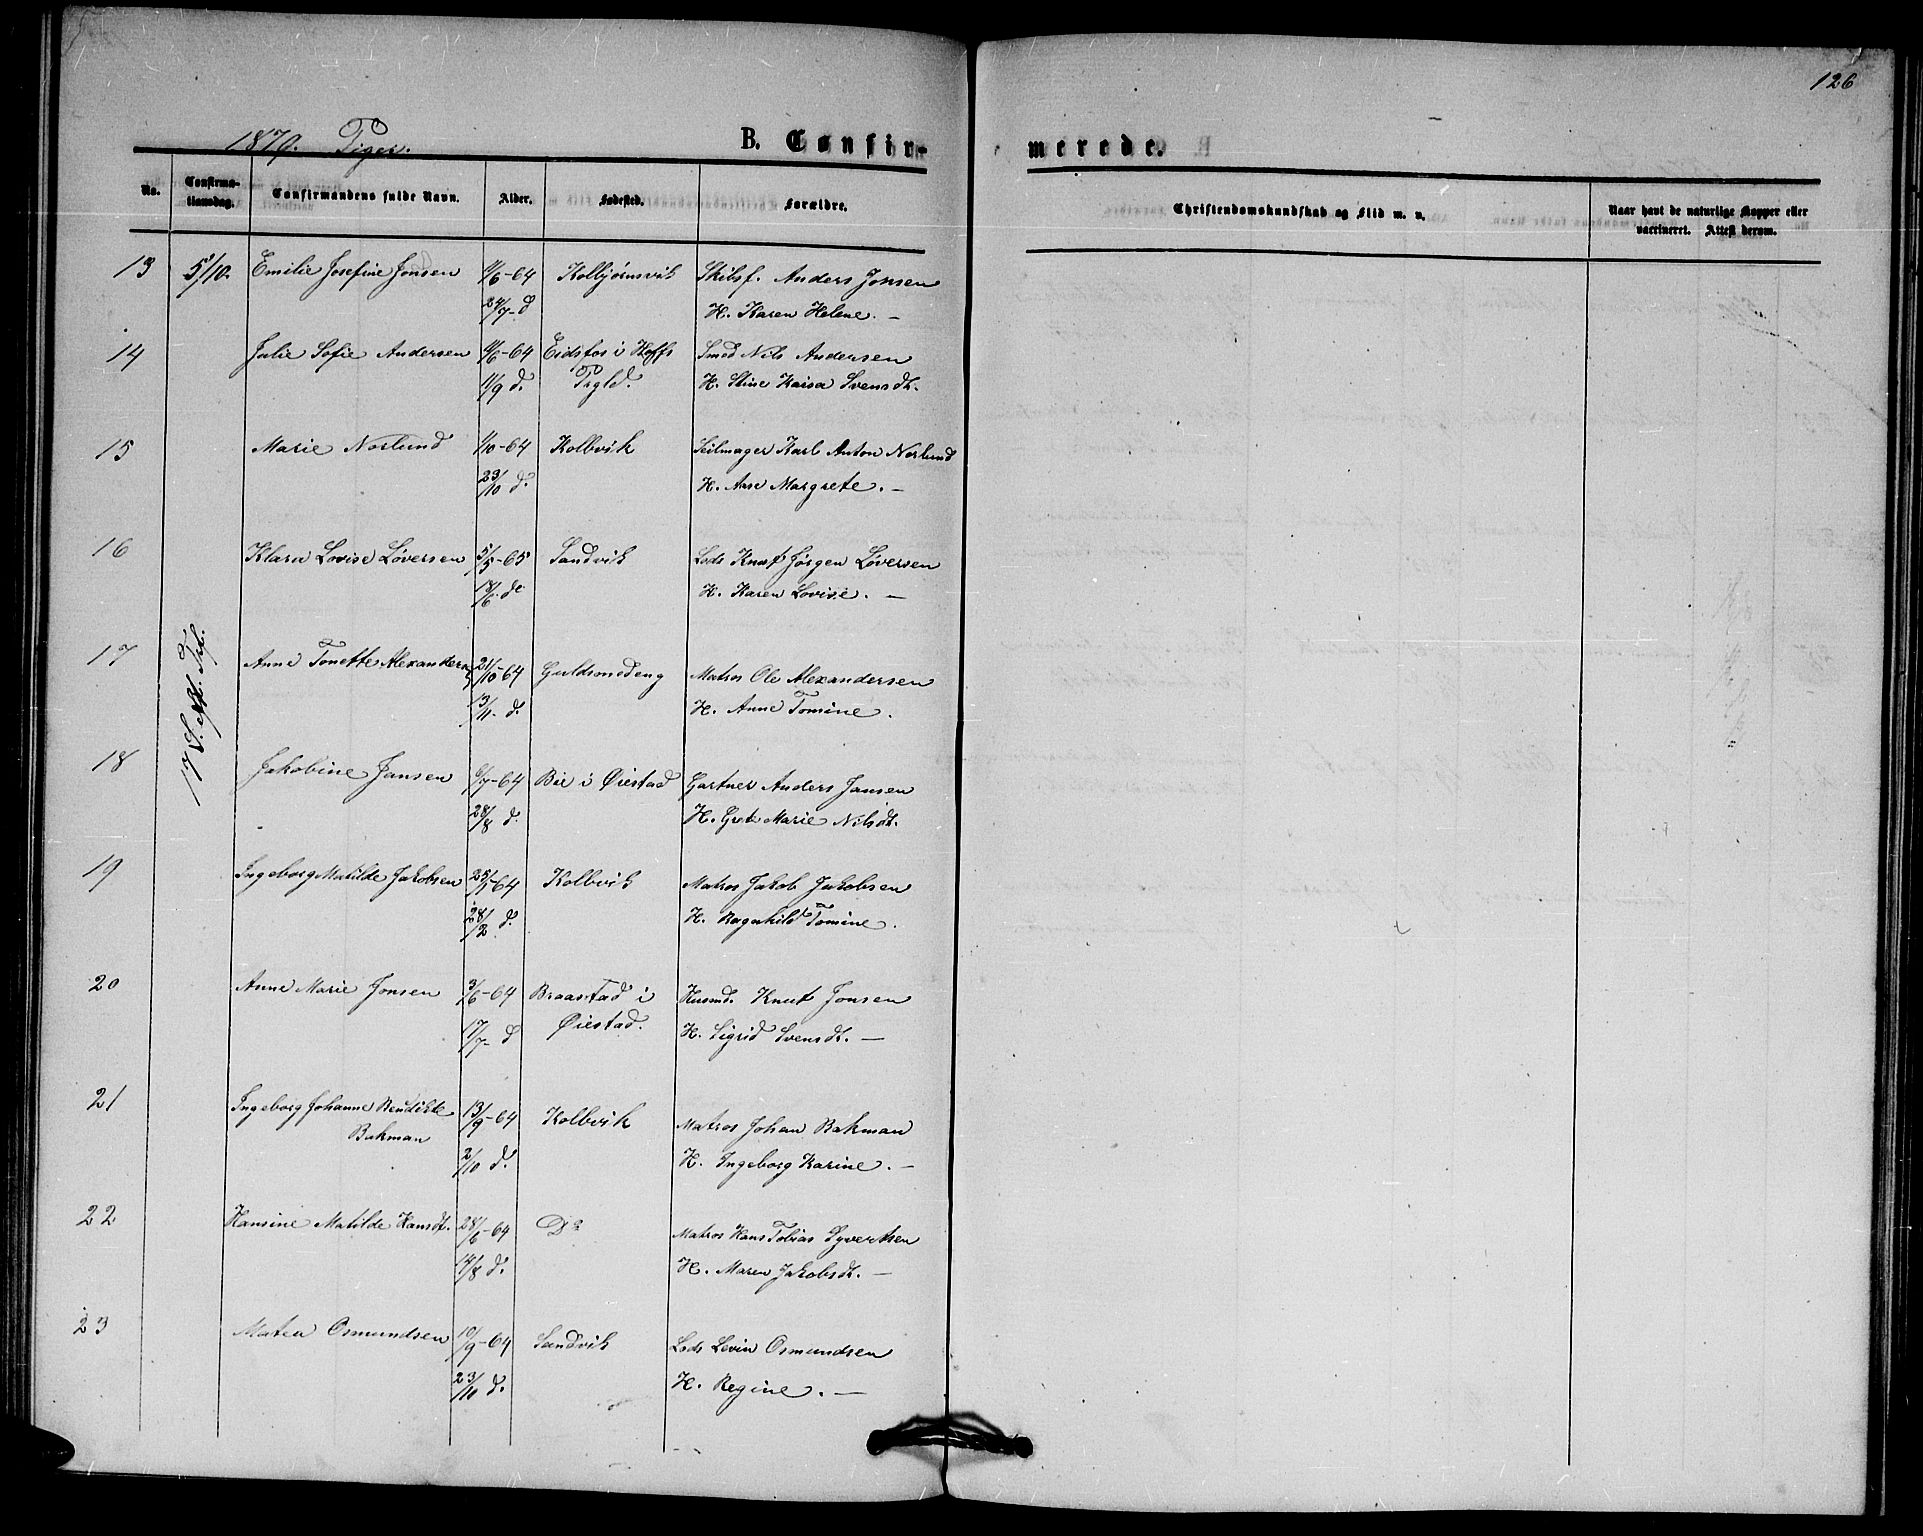 126
1879. Piger.
B. Confir-
merede.
No.
Confirma-
tionsdag.
Confirmandens fulde Navn.
Alder.
Fødested.
Forældre.
Christendomskundskab og Flid m. v.
Naar havt de naturlige Kopper eller
vaccineret. Attest derom.
13 5/10. Emilie Josefine Jonsen /6-64 Kolbjørnsvik Skibsf. Anders Jonsen
24/7- d H. Karen Helene. —
14 Julie Sofie Andersen /6-64 Eidsfos i Hoffs Smed Nils Andersen
11/9 d. Prgld. H. Stine Kaisa Svensdt.
15 Marie Norlund /10-64 Kolbvik Seilmager Karl Anton Norlund
23/10 d. H. Ane Margrete. —
16 Klara Lovise Løversen 5/5-65 Sandvik Lods Knut Jørgen Løversen
18/6. do H. Karen Lovise. —
17 17 S. eft. Tref. Anne Tonette Alexandersen 21/10-64 Guldsmedeng Matros Ole Alexandersen
13/11- d. H. Anne Tomine.
18 Jakobine Jansen 6/7-64 Bie i Øiestad Gartner Anders Jansen
28/8 d. H. Grete Marie Nilsdt.
19 Ingeborg Matilde Jakobsen 25/1-64 Kolbvik Matros Jakob Jakobsen
28/2 d. H. Ragnhild Tomine.
20 Anne Marie Jonsen 3/6-64 Braastad i Husmd. Knut Jonsen
17/7- d Øiestad. H. Sigrid Svensdt. —
21 Ingeborg Johanne Bendikte 13/9-64 Kolbvik Matros Johan Bakman
Bakman 2/10 d. H. Ingeborg Karine. —
22 Hansine Matilde Hansdt. 28/6-64 Do Matros Hans Tobias Syvertsen
14/8 d. H. Maren Jakobsdt. —
23 Matea Osmundsen 10/9-64 Sandvik Lods Levin Osmundsen
23/10 d. H. Regine. —